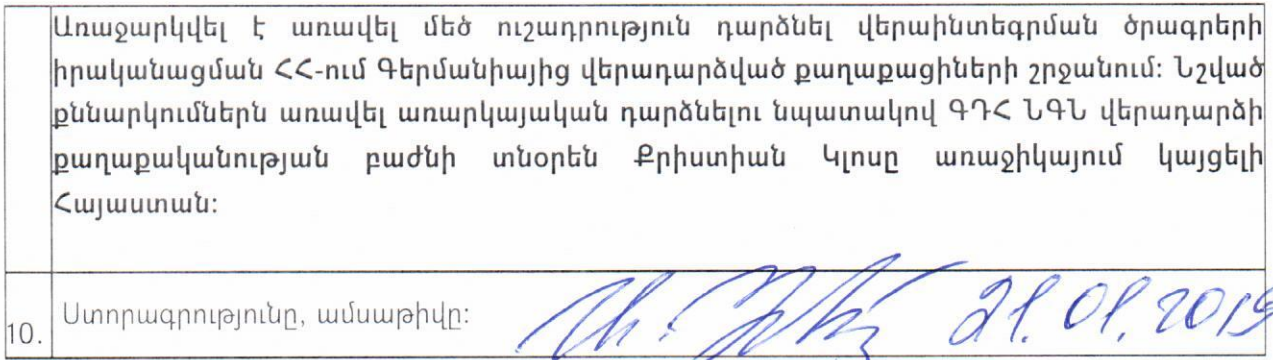 Առաջարկվել է առավել մեծ ուշադրություն դարձնել վերաինտեգրման ծրագրերի
իրականացման ՀՀ-ում Գերմանիայից վերադարձված քաղաքացիների շրջանում: Նշված
քննարկումներն առավել առարկայական դարձնելու նպատակով ԳԴՀ ՆԳՆ վերադարձի
քաղաքականության բաժնի տնօրեն Քրիստիան Կլոսը առաջիկայում կայցելի
Հայաստան:
10. Ստորագրությունը, ամսաթիվը: 21.01.2019